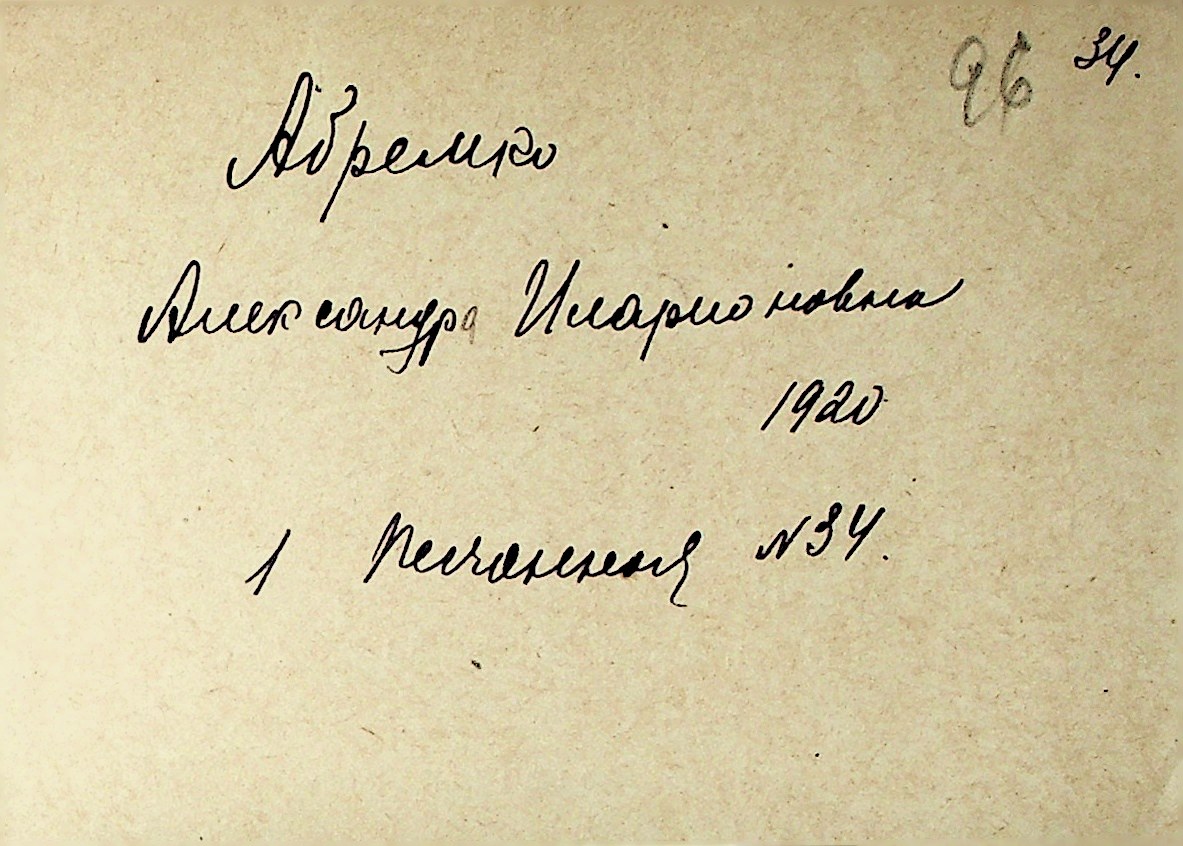 96 34.
Абремко
Александра Иларионовна
1920
1 Песчанная №34.